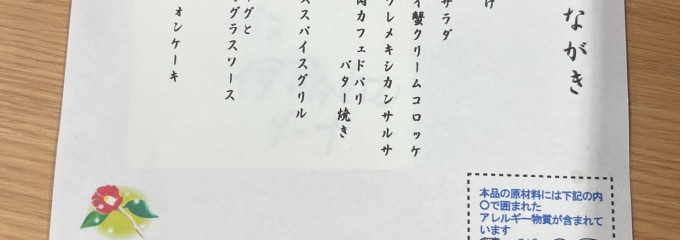 ながき
け
サラダ
イ蟹クリームコロッケ
ソレメキシカンサルサ
肉カフェドパリ
バター焼き
ススパイスグリル
グと
マグラスソース
ォンケーキ
本品の原材料には下記の内
〇で囲まれた
アレルギー物質が含まれて
います